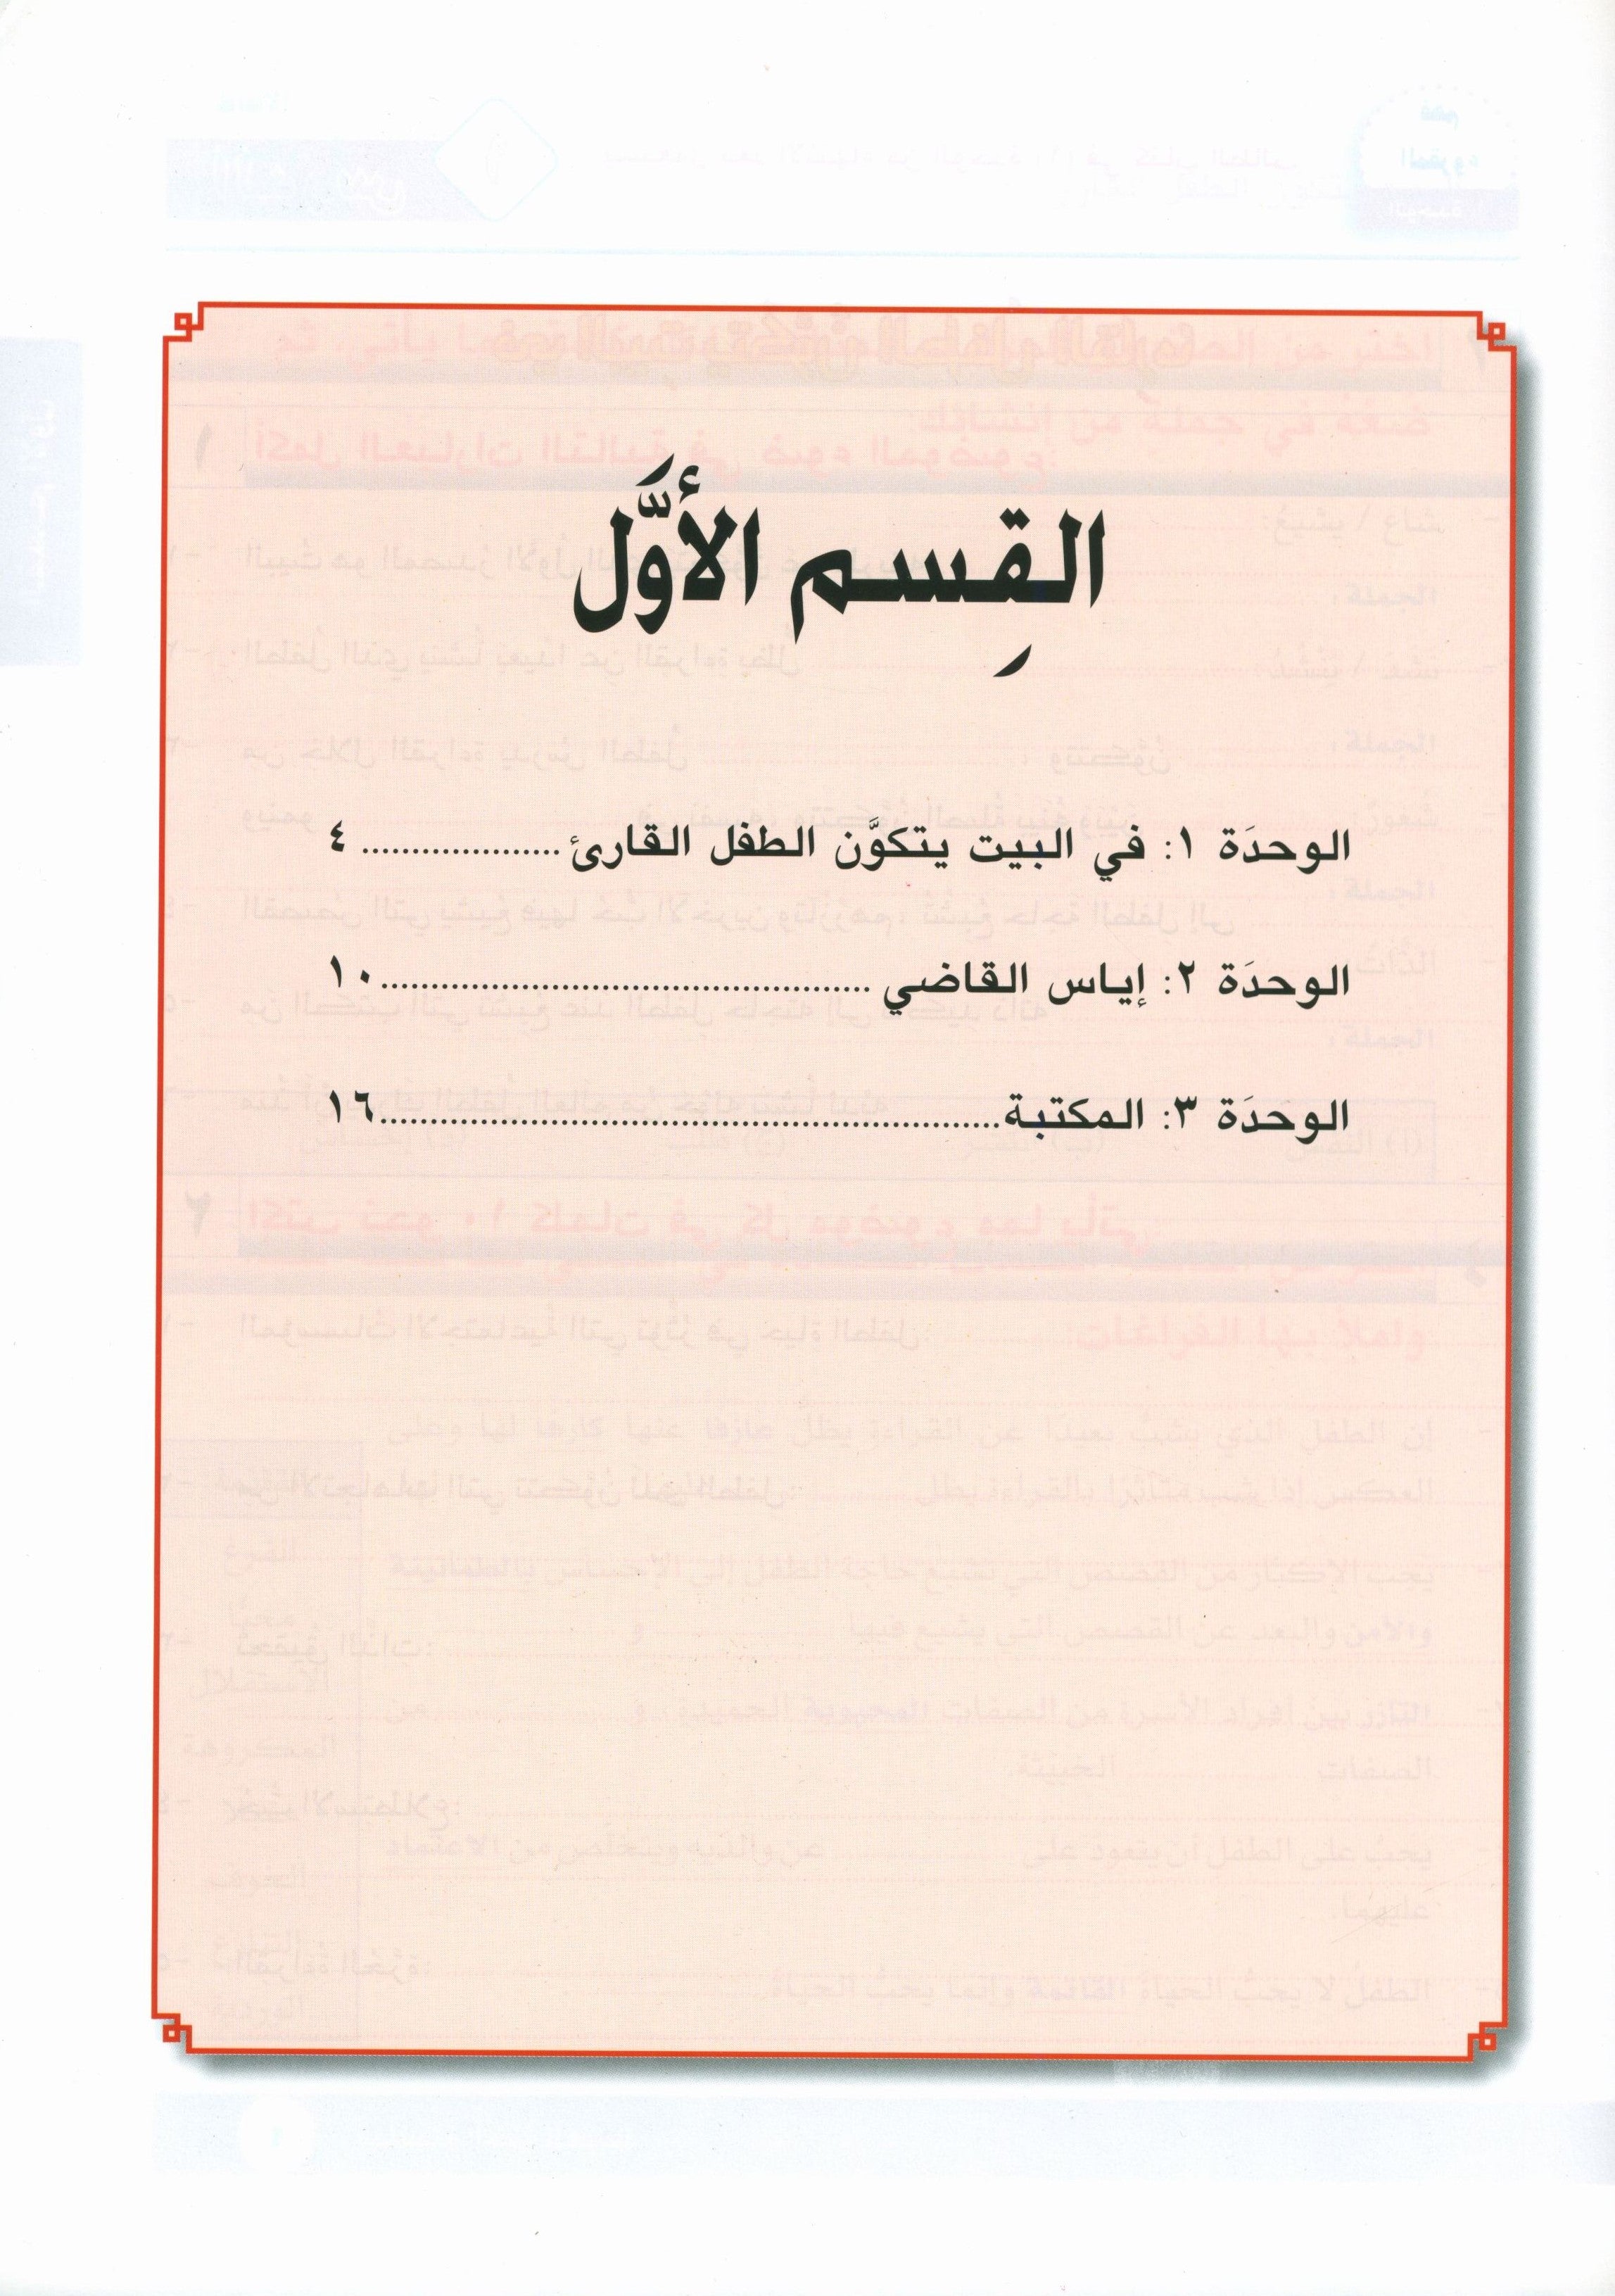 القِسم الأَوَّل
الوحدَة ١: في البيت يتكوَّن الطفل القارئ................... ٤
الوحدَة ٢: إياس القاضي ................................................١٠
الوحدَة ٣: المكتبة.............................................................١٦